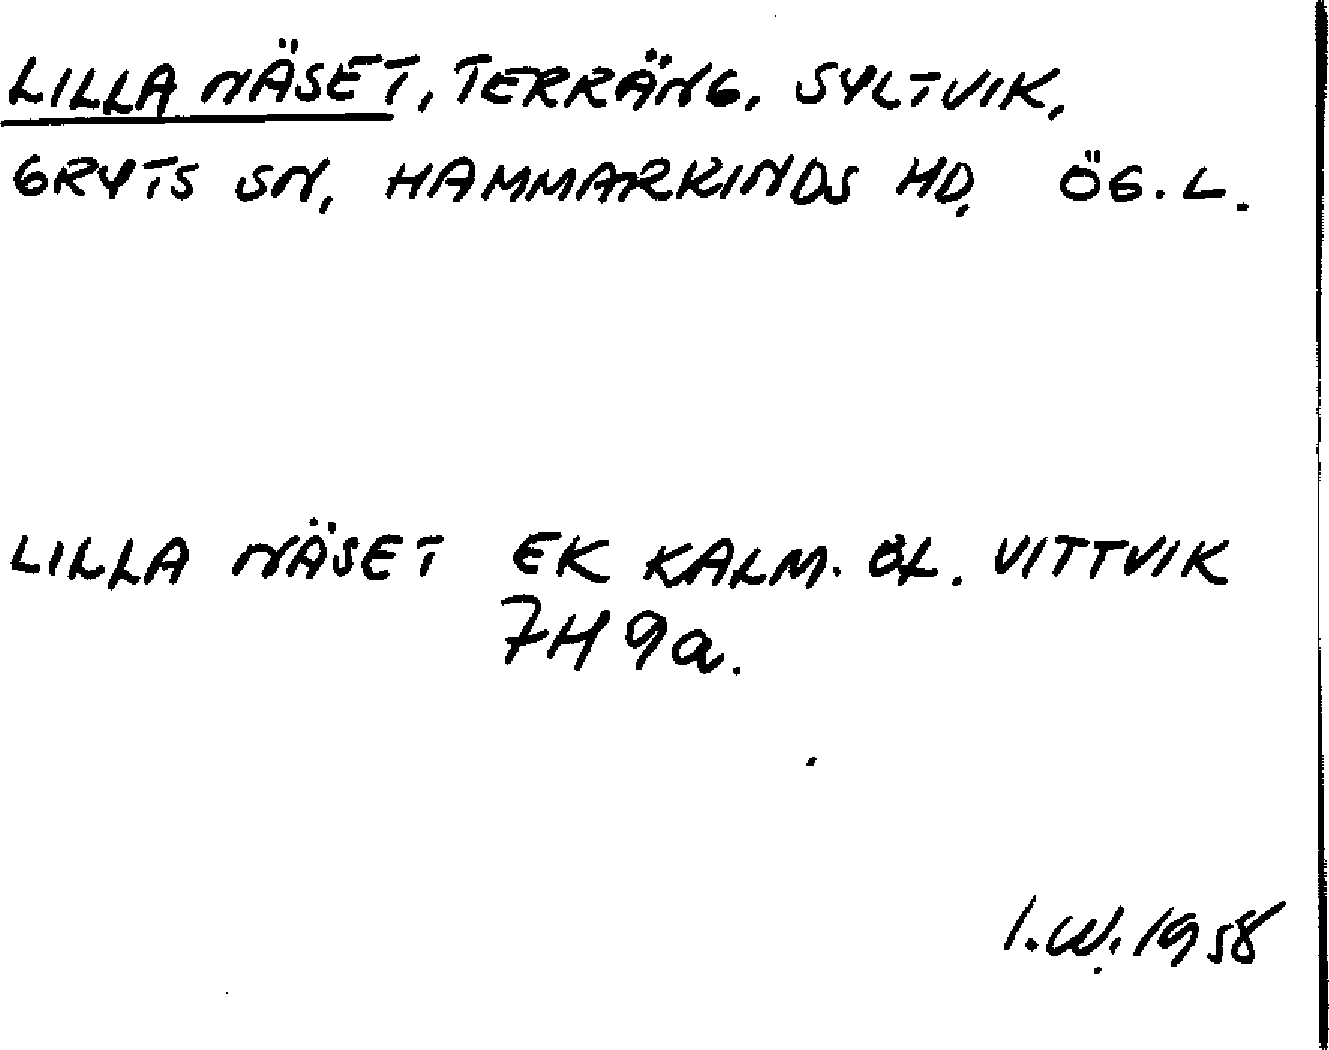 LILLA NÄSET, TERRÄNG, SYLTVIK,
GRYTS SN, HAMMARKINDS HD, ÖG. L.
LILLA NÄSET EK KALM. ÖL. VITTVIK
7H 9a.
I.W. 1958